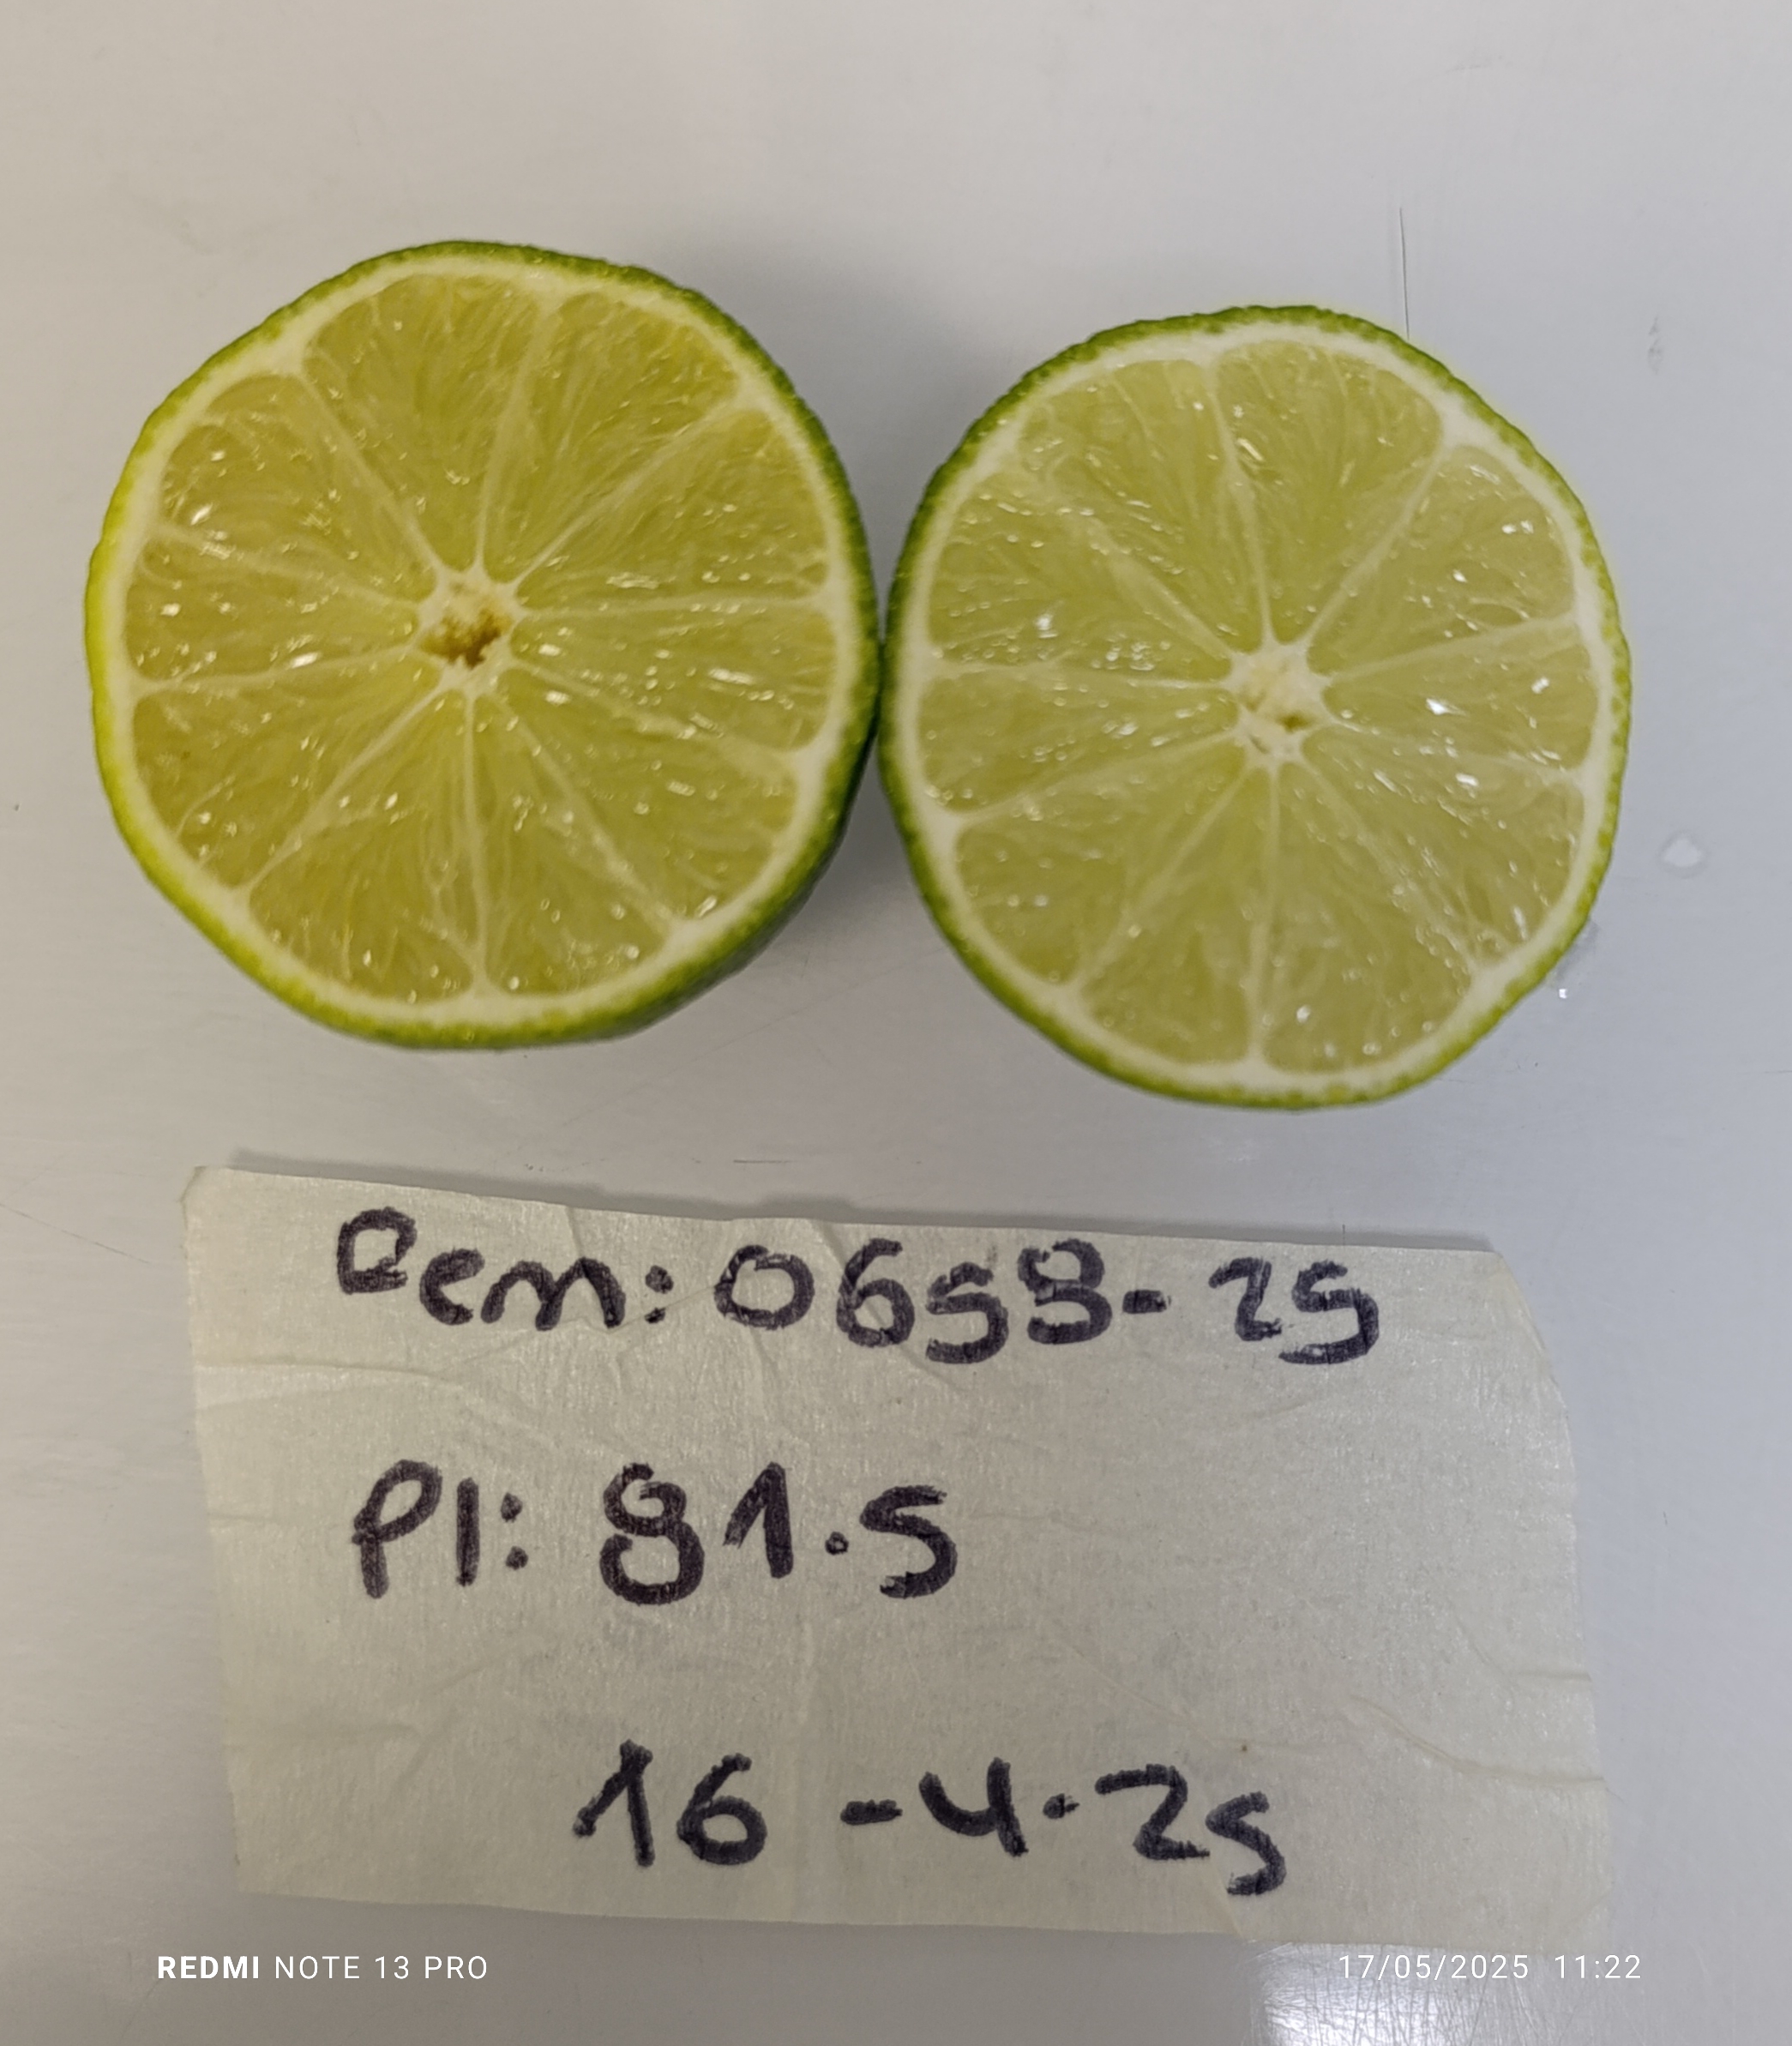 Rem: 0658-25
Pl: 81.5
16-4-25
REDMI NOTE 13 PRO
17/05/2025 11:22